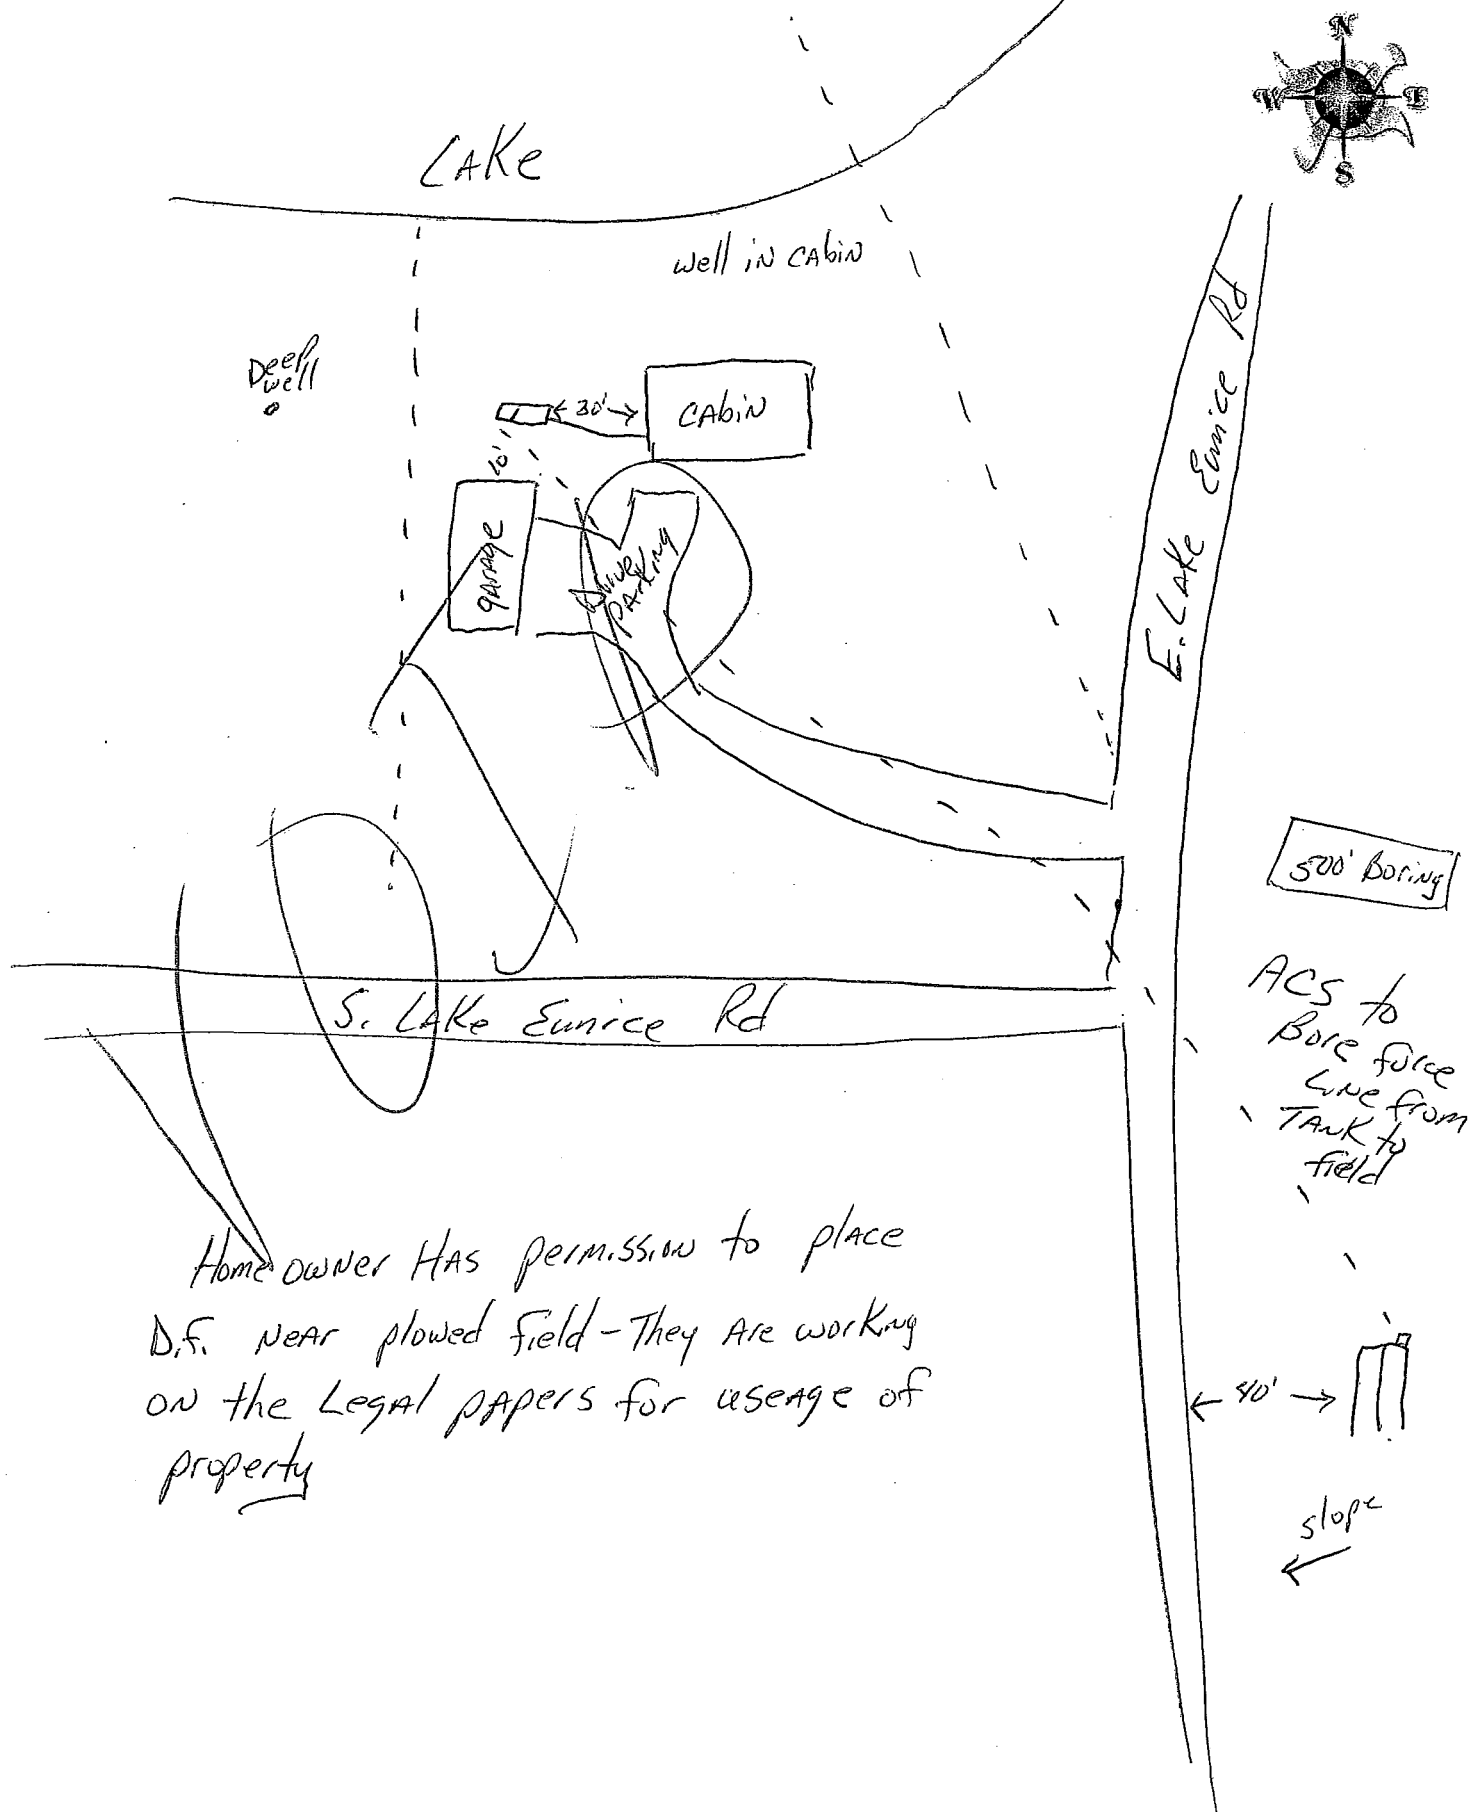 N
W E
S
LAKE
well in cabin
Deep
well
30'
Cabin
10'
garage
Drive
Parking
E. Lake Eunice Rd
500' Boring
ACS to
Bore force
Line from
TANK to
field
S. Lake Eunice Rd
Home owner HAS permission to place
D.F. Near plowed field - They Are working
on the Legal papers for useage of
property
40'
slope